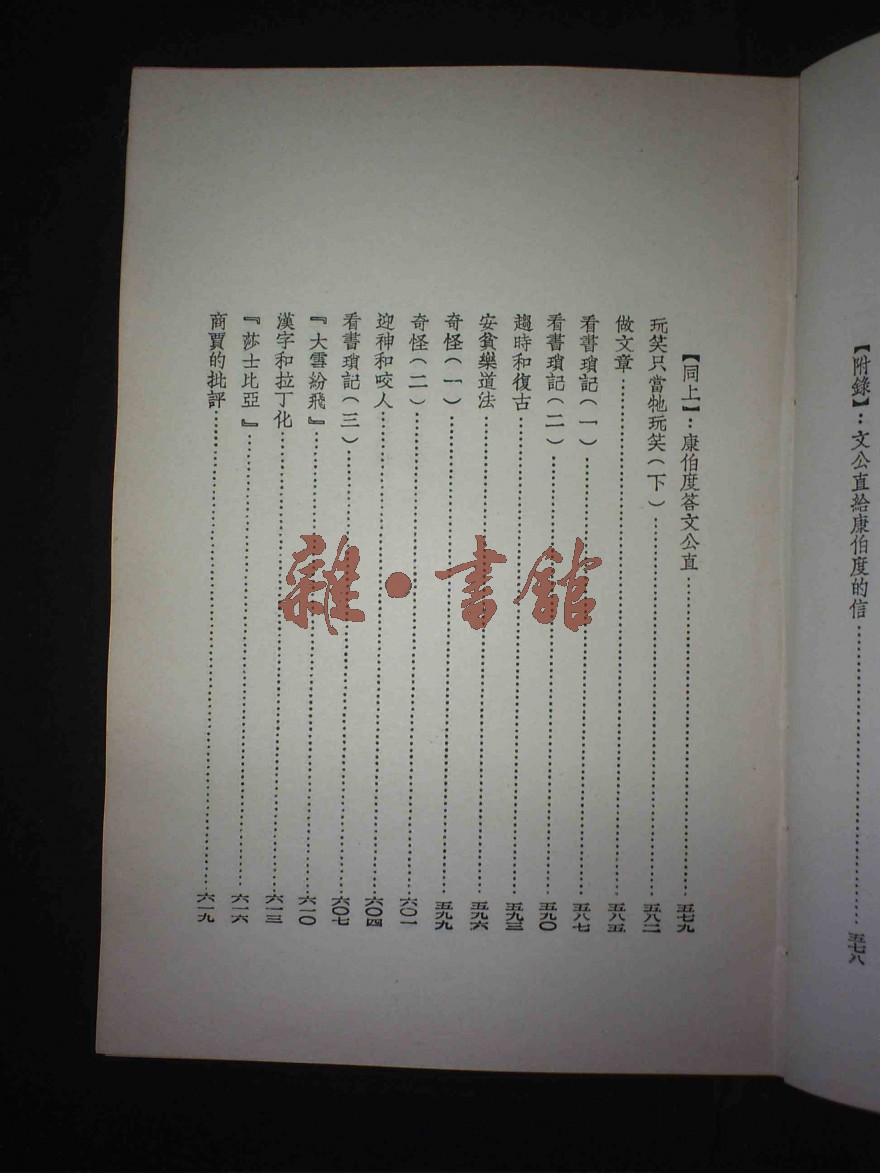 【附錄】：文公直給康伯度的信……五七八
【同上】：康伯度答文公直……五七九
玩笑只當牠玩笑（下）……五八二
做文章……五八五
看書瑣記（一）……五八七
看書瑣記（二）……五九〇
趨時和復古……五九三
安貧樂道法……五九六
奇怪（一）……五九九
奇怪（二）……六〇一
迎神和咬人……六〇四
看書瑣記（三）……六〇七
『大雪紛飛』……六一〇
漢字和拉丁化……六一三
『莎士比亞』……六一六
商賈的批評……六一九
雜·書館